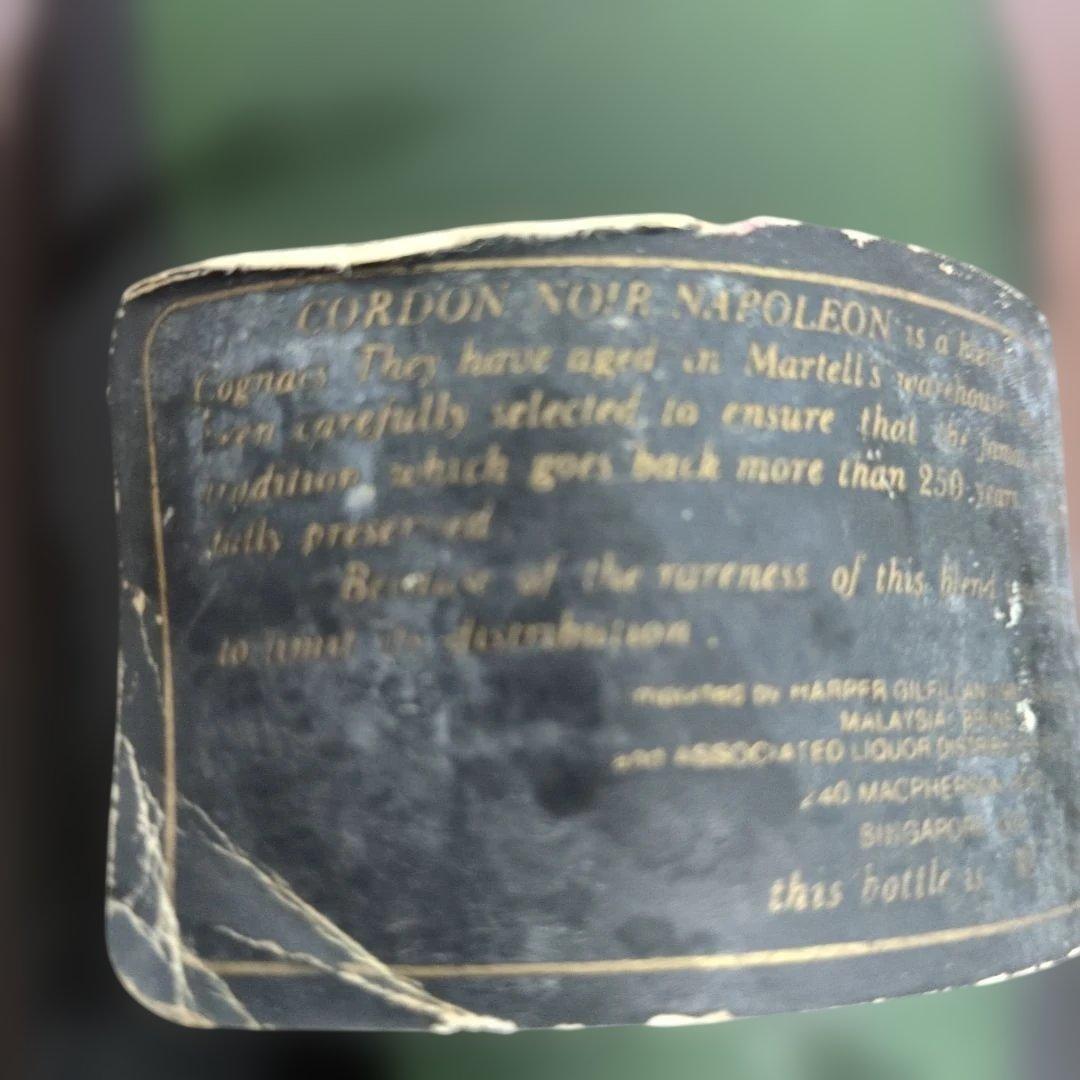 CORDON NOIR NAPOLEON is a
Cognacs They have aged in Martell's
been carefully selected to ensure that the
tradition which goes back more than 250 years
fully preserved
Because of the rareness of this blend
to limit its distribution .
imported by HARPER GILFILLAN
MALAYSIA
and ASSOCIATED LIQUOR
240 MACPHERSON
SINGAPORE
this bottle is